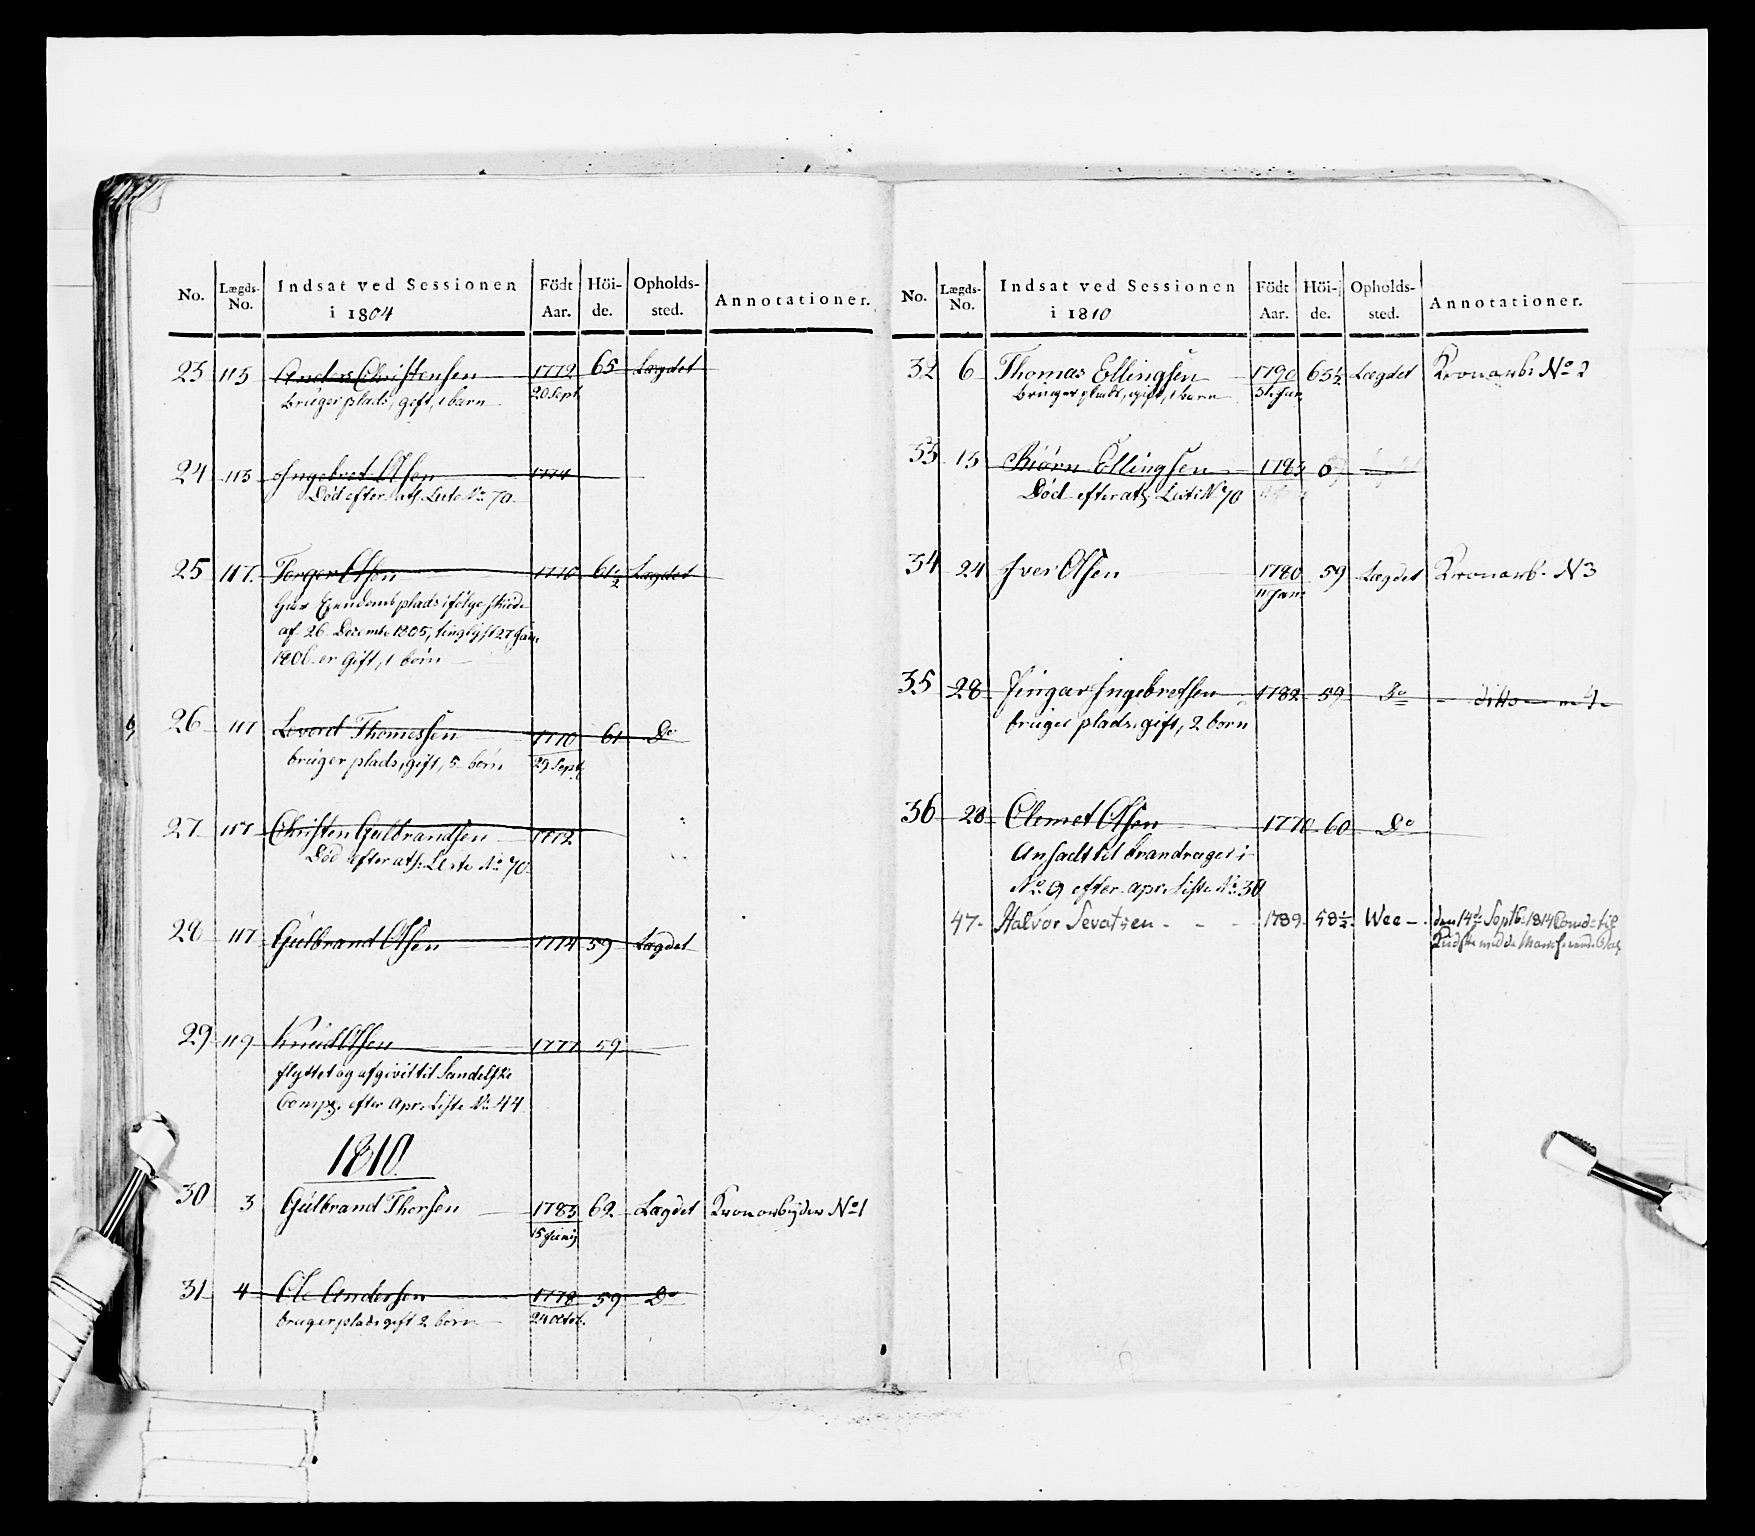 No. Lægds-No. Indsat ved Sessionen i 1804 Födt Aar. Höi-de. Opholds-sted. Annotationer.
23 115 Anders Christensen 1772 65 Lægdet
bruger plads, gift, 1 barn 20 Sept
24 115 Ingebret Olsen 1774
Död efter att: Liste No 70
25 117. Torger Olsen 1770 61½ Lægdet
har Ejendoms plads ifölge skiöde
af 26 Decembr 1805, tinglyst 27 Janr
1806. er Gift, 1 barn
26 117 Levord Thomessen 1770 61 Do
bruger plads, gift, 5 börn 29 Sept
27 117 Christen Gulbrandsen 1772
Död efter att: Liste No 70
28 117 Gulbrand Olsen 1774 59 Lægdet
29 119 Knud Olsen 1777 59
flyttet og afgivet til Sandelske
Comp. efter Apr. Liste No 44
1810.
30 3 Gulbrand Thorsen 1783 62 Lægdet Kronarbejder No 1
15 Junij
31 4 Ole Andersen 1778 59 Do
bruger plads gift 2 börn 24 Octob.
No. Lægds-No. Indsat ved Sessionen i 1810 Födt Aar. Höi-de. Opholds-sted. Annotationer.
32 6 Thomas Ellingsen 1790 63½ Lægdet Kronarb: No 2
bruger plads, gift, 1 barn 31 Jan
33 15 Biörn Ellingsen 1793
Död efter att: Liste No 70
34 24 Iver Olsen 1780 59 Lægdet Kronarb. N 3
11 Jan
35 28 Fingar Ingebretsen 1782 59 Do ditto 4
bruger plads, gift, 2 börn
36 28 Clemet Olsen 1770 60 Do
Ansadt til brandrager i
No 9 efter apr. Liste No 30
47 Halvor Sevatsen 1789 58½ Wee den 14de Septb 1814 Comd til